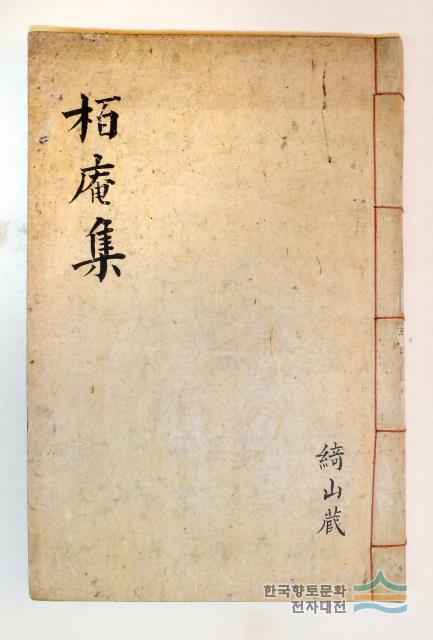 栢庵集
綺山蔵
한국향토문화
전자대전